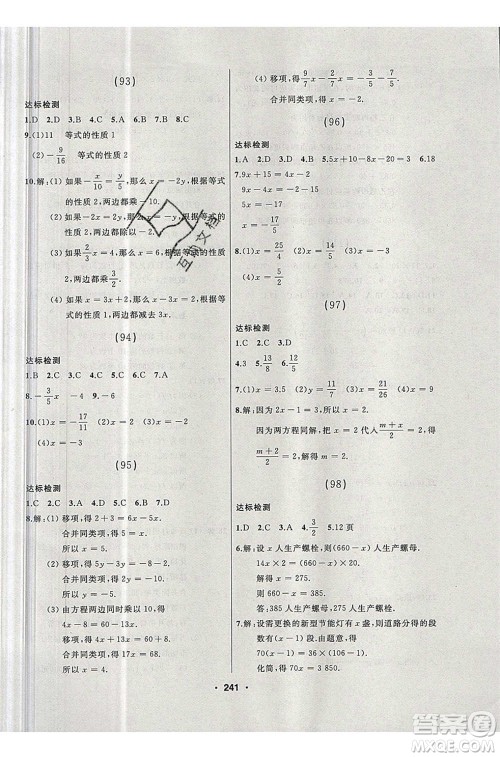 (93)
达标检测
1.D 2.C 3.D 4.C 5.A 6.D 7.B 8.C
9.(1)11 等式的性质 1
(2)-9/16 等式的性质 2
10.解:(1)如果-x/10=y/5,那么 x=-2y,根据等式的性质 2,两边都乘-10.
(2)如果-2x=2y,那么 x=-y,根据等式的性质 2,两边都除以-2.
(3)如果2/3x=4,那么 x=6,根据等式的性质 2,两边都乘3/2.
(4)如果 x=3x+2,那么 x-3x=2,根据等式的性质 1,两边都减去 3x.
(94)
达标检测
1.B 2.C 3.A 4.C 5.B 6.D 7.B
10.(1)x=-17/11 (2)x=-2 (3)x=-2
(4)x=-3
(95)
达标检测
1.C 2.C 3.A 4.C 5.A 6.A 7.D
8.解:(1)移项,得 2+3=6x-5x.
合并同类项,得 5=x.
所以 x=5.
(2)移项,得 5y-3y=5-8
合并同类项,得 2y=-3.
(3)由方程两边同时乘以 10,得
4x-3=14-13x.
移项,得 4x+13x=14+3.
合并同类项,得 17x=17.
所以 x=1.
(4)移项,得9/7x-2/7x=-7
合并同类项,得 x=-7.
(96)
达标检测
1.A 2.D 3.C 4.B 5.5x+10-8x-20=3 6.18
7.9x+15=4x-2
9x-4x=-2-15
5x=-17
(97)
达标检测
1.C 2.C 3.D
8.解:因为 2x-1=3,
所以 x=2.
因为两方程同解,把 x=2 代入(m+x)/2=2,得
(m+2)/2=2.
所以 m=2.
(98)
达标检测
1.D 2.C 3.A 4.3/2 5.12 页
6.解:设 x 人生产螺栓,(660-x)人生产螺母.
14x×2=20(660-x).
解得 x=275.
所以 660-x=385.
答:385 人生产螺母,275 人生产螺栓.
7.解:设需更换的新型节能灯有 x 盏,则道路分得的段
数有(x-1)段.由题意,得
70(x-1)=36×(106-1).
化简,得 70x=3 850.
241
互动文档
答案圈
MXQE.COM